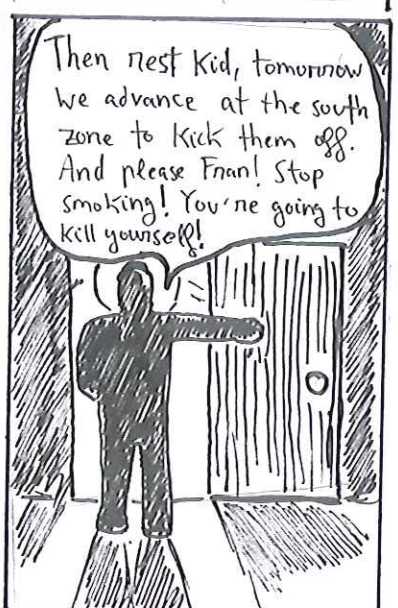 Then rest kid, tomorrow
we advance at the south
zone to kick them off.
And please Fran! Stop
smoking! You're going to
kill yourself!